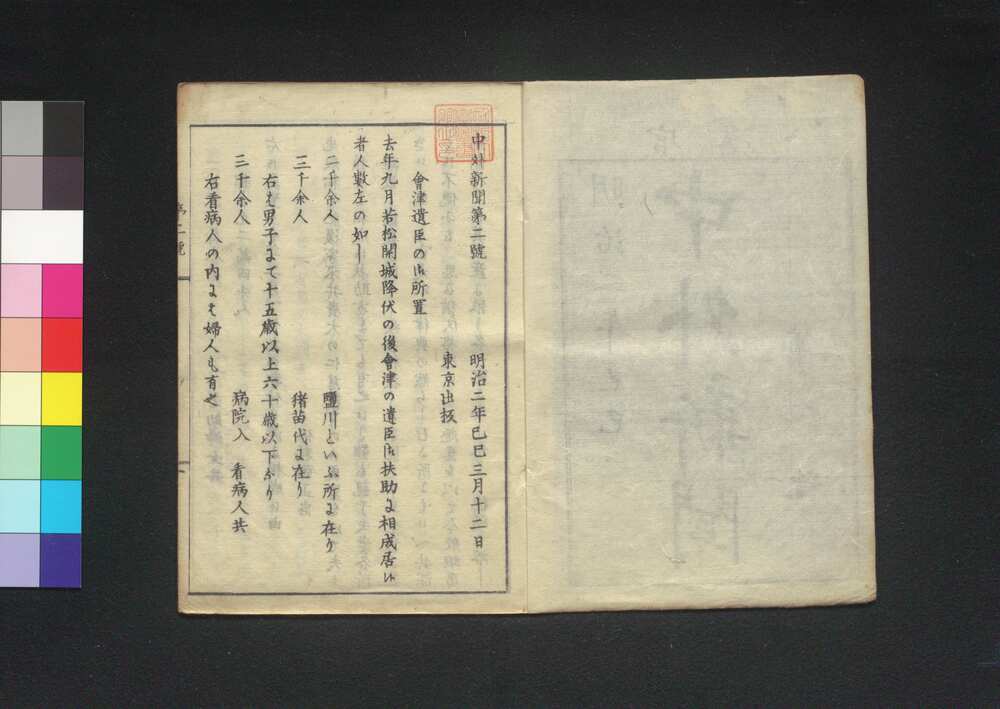 中外新聞第二號 明治二年己巳三月十二日
東京出板
會津遺臣の御所置
去年九月若松開城降伏の後會津の遺臣御扶助に相成居候
者人數左の如し
二千余人 鹽川といふ所に在り
三千余人 猪苗代に在り
右は男子にて十五歳以上六十歳以下なり
三千余人 病院入 看病人共
右看病人の内には婦人も有之
第二號